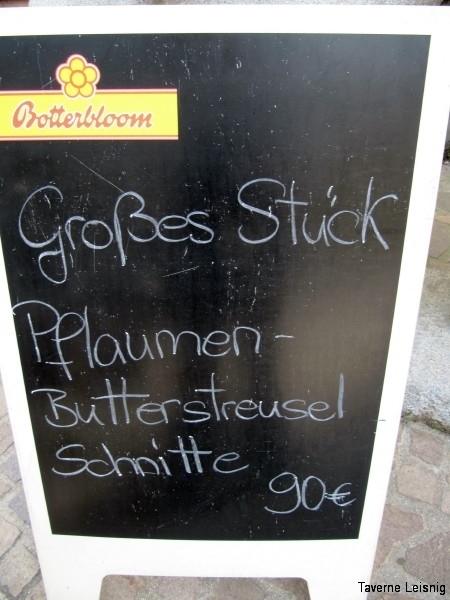 Botterbloom
Großes Stück
Pflaumen-
Butterstreusel
Schnitte
90€
Taverne Leisnig